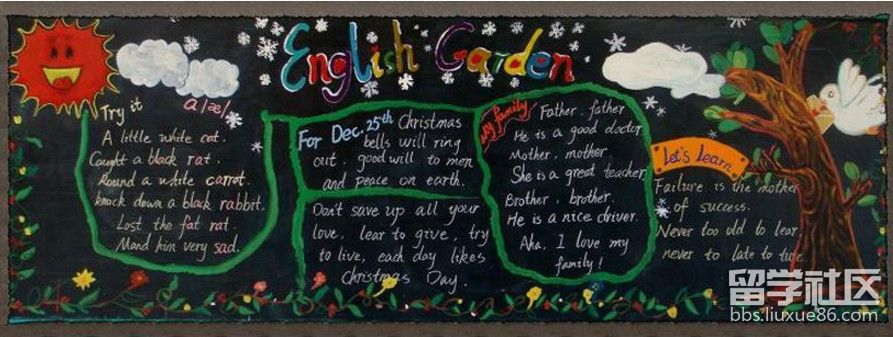 English Garden
Try it
a/æ/
A little white cat.
Caught a black rat.
Round a white carrot.
knock down a black rabbit.
Lost the fat rat.
Mand him very sad.
For Dec. 25th Christmas
bells will ring
out. good will to men
and peace on earth.
Don't save up all your
love. lear to give, try
to live, each day likes
Christmas Day.
My family
Father. father
He is a good doctor
Mother. mother.
She is a great teacher
Brother. brother.
He is a nice driver.
Aha. I love my
family!
Let's Learn
Failure is the mother
of success.
Never too old to lear,
never to late to ture
留学社区
bbs.liuxue86.com